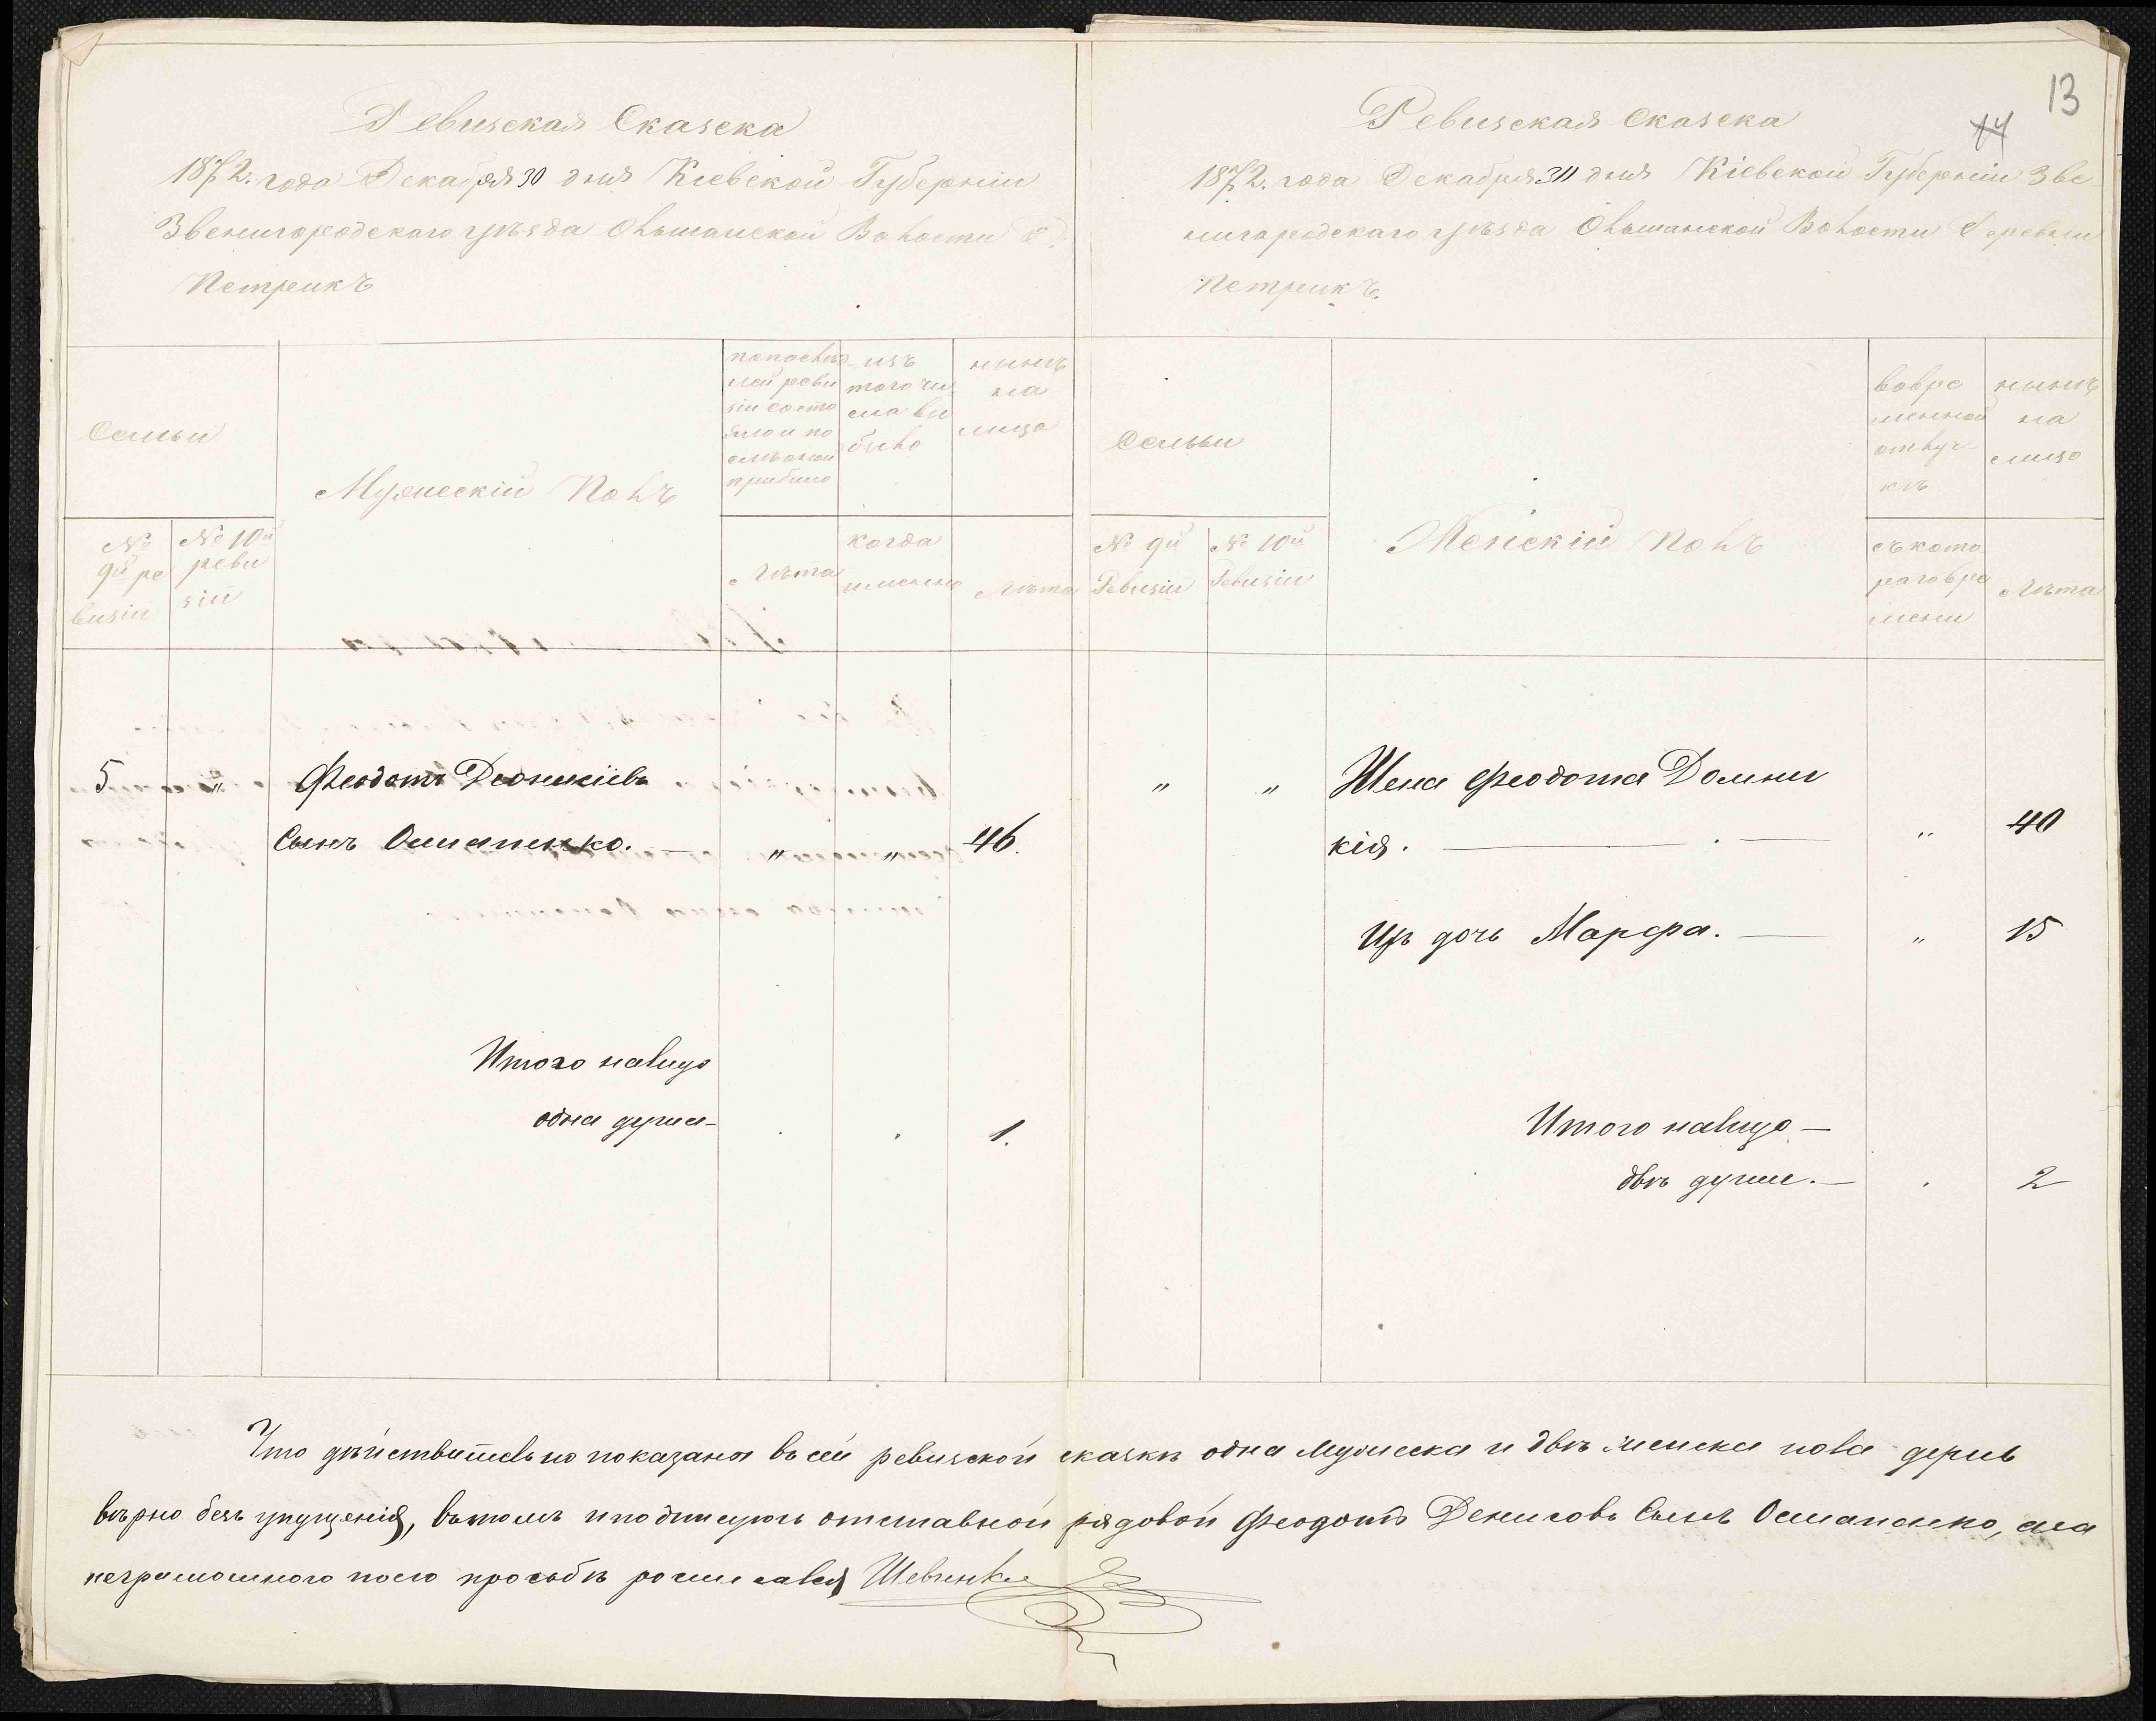 Ревизская Сказска
1872. года Декабря 30 дня Кіевской Губерніи
Звенигородскаго уѣзда Ольшанской Волости Д.
Петрикъ
Семьи
№ 9й ре
визіи
№ 10й
реви
зіи
Мужескій Полъ
попослѣд
ней реви
зіи состо
яло и по
слѣ оной
прибыло
Лѣта
изъ
того чи
сла вы
было
когда
именно
нынѣ
на
лицо
Лѣта
5 " Феодотъ Деоникіевъ
Сынъ Остапенко. — " " 46.
Итого налицо
одна душа — 1.
13
14
Ревизская Сказска
1872. года Декабря 30 дня Кіевской Губерніи Зве
нигородскаго уѣзда Ольшанской Волости Деревни
Петрикъ.
Семьи
№ 9й
Ревизіи
№ 10й
Ревизіи
Женскій Полъ
вовре
менной
отлуч-
кѣ
съ кото
раго вре
мени
нынѣ
на
лицо
Лѣта
" " Жена Феодота Домни
кія. — " 40
Ихъ дочь Марфа. — " 15
Итого налицо —
двѣ души. — 2
Что дѣйствительно показана въ сей ревизской сказкѣ одна мужеска и двѣ женска пола душъ
вѣрно безъ упущенія, въ томъ и подписуюсь отставной рядовой Феодотъ Денисовъ Сынъ Остапенко, а за
неграмотного по его прозьбѣ росписался Шевченко